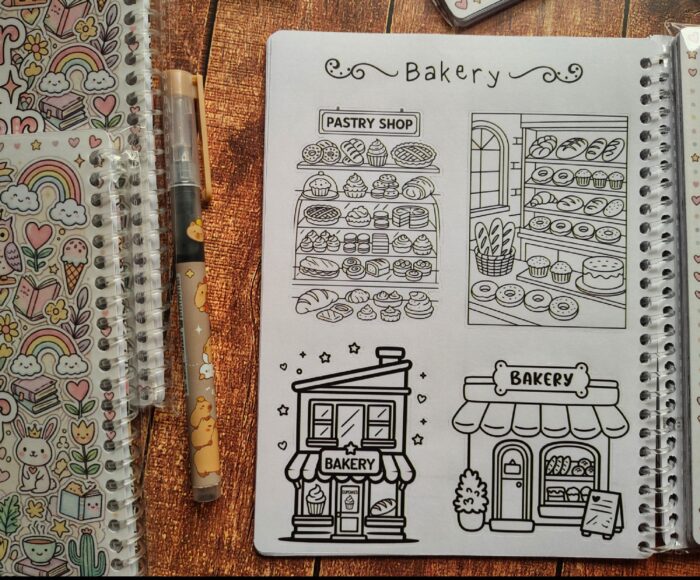 Bakery
PASTRY SHOP
BAKERY
CUPCAKES
BAKERY